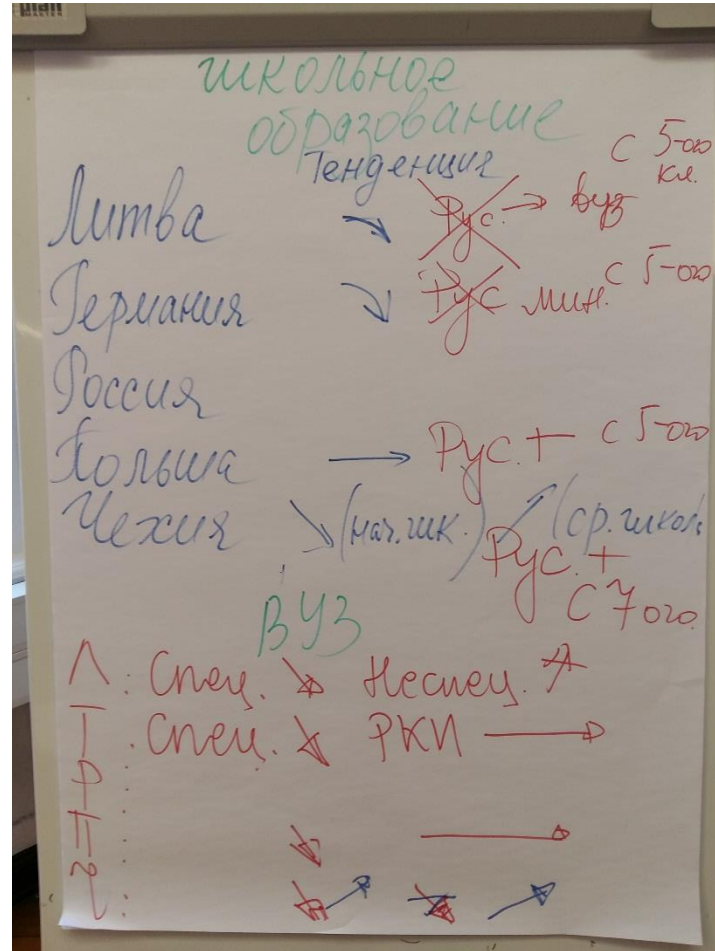 plan
MASTER
школьное
образование
Тенденция
Литва ↘ Рус. → вуз с 5-ого кл.
Германия ↘ Рус мин. с 5-ого
Россия
Польша → Рус. + с 5-ого
Чехия ↘ (нач. шк.) ↗ (ср. школ
Рус. +
с 7ого.
ВУЗ
Л: Спец. ↘ Неспец. ↗
Г: Спец. ↘ РКИ →
Р:
П: ↘ →
Ч: ↘ ↗ ↘ ↗